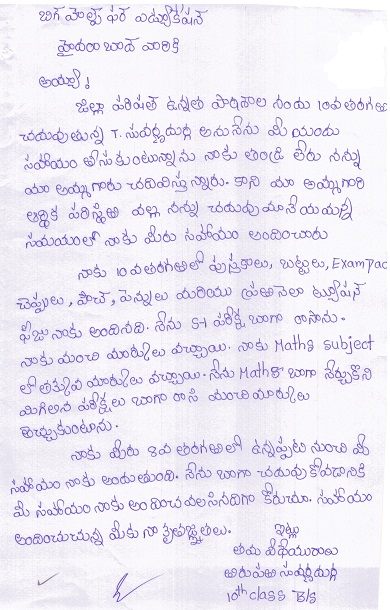 బిగ్ హెల్ప్ ఫర్ ఎడ్యుకేషన్
హైదరాబాద్ వారికి
అయ్యా!
జిల్లా పరిషత్ ఉన్నత పాఠశాల నందు 10వ తరగతి
చదువుతున్న T. సువర్ణదుర్గ అను నేను మీ యందు
సహాయం తీసుకుంటున్నాను నాకు తండ్రి లేరు నన్ను
మా అమ్మగారు చదివిస్తున్నారు. కాని మా అమ్మగారి
ఆర్థిక పరిస్థితి వల్ల నన్ను చదువు మానేయమన్న
సమయంలో నాకు మీరు సహాయం అందించారు
నాకు 10వ తరగతిలో పుస్తకాలు, బట్టలు, Exampad
చెప్పులు, పౌచ్, పెన్నులు మరియు ప్రతినెలా ట్యూషన్
ఫీజు నాకు అందినది. నేను S-1 పరీక్ష బాగా రాసాను.
నాకు మంచి మార్కులు వచ్చాయి. నాకు Maths subject
లో తక్కువ మార్కులు వచ్చాయి. నేను Maths బాగా నేర్చుకొని
మిగిలిన పరీక్షలు బాగా రాసి మంచి మార్కులు
తెచ్చుకుంటాను.
నాకు మీరు 8వ తరగతిలో ఉన్నప్పటి నుంచి మీ
సహాయం నాకు అందుతుంది. నేను బాగా చదువుకోవడానికి
మీ సహాయం నాకు అందించవలసినదిగా కోరుచూ. సహాయం
అందించుచున్న మీకు నా కృతజ్ఞతలు.
ఇట్లు
తమ విధేయురాలు
తిరుపతి సువర్ణదుర్గ
10th class B/s